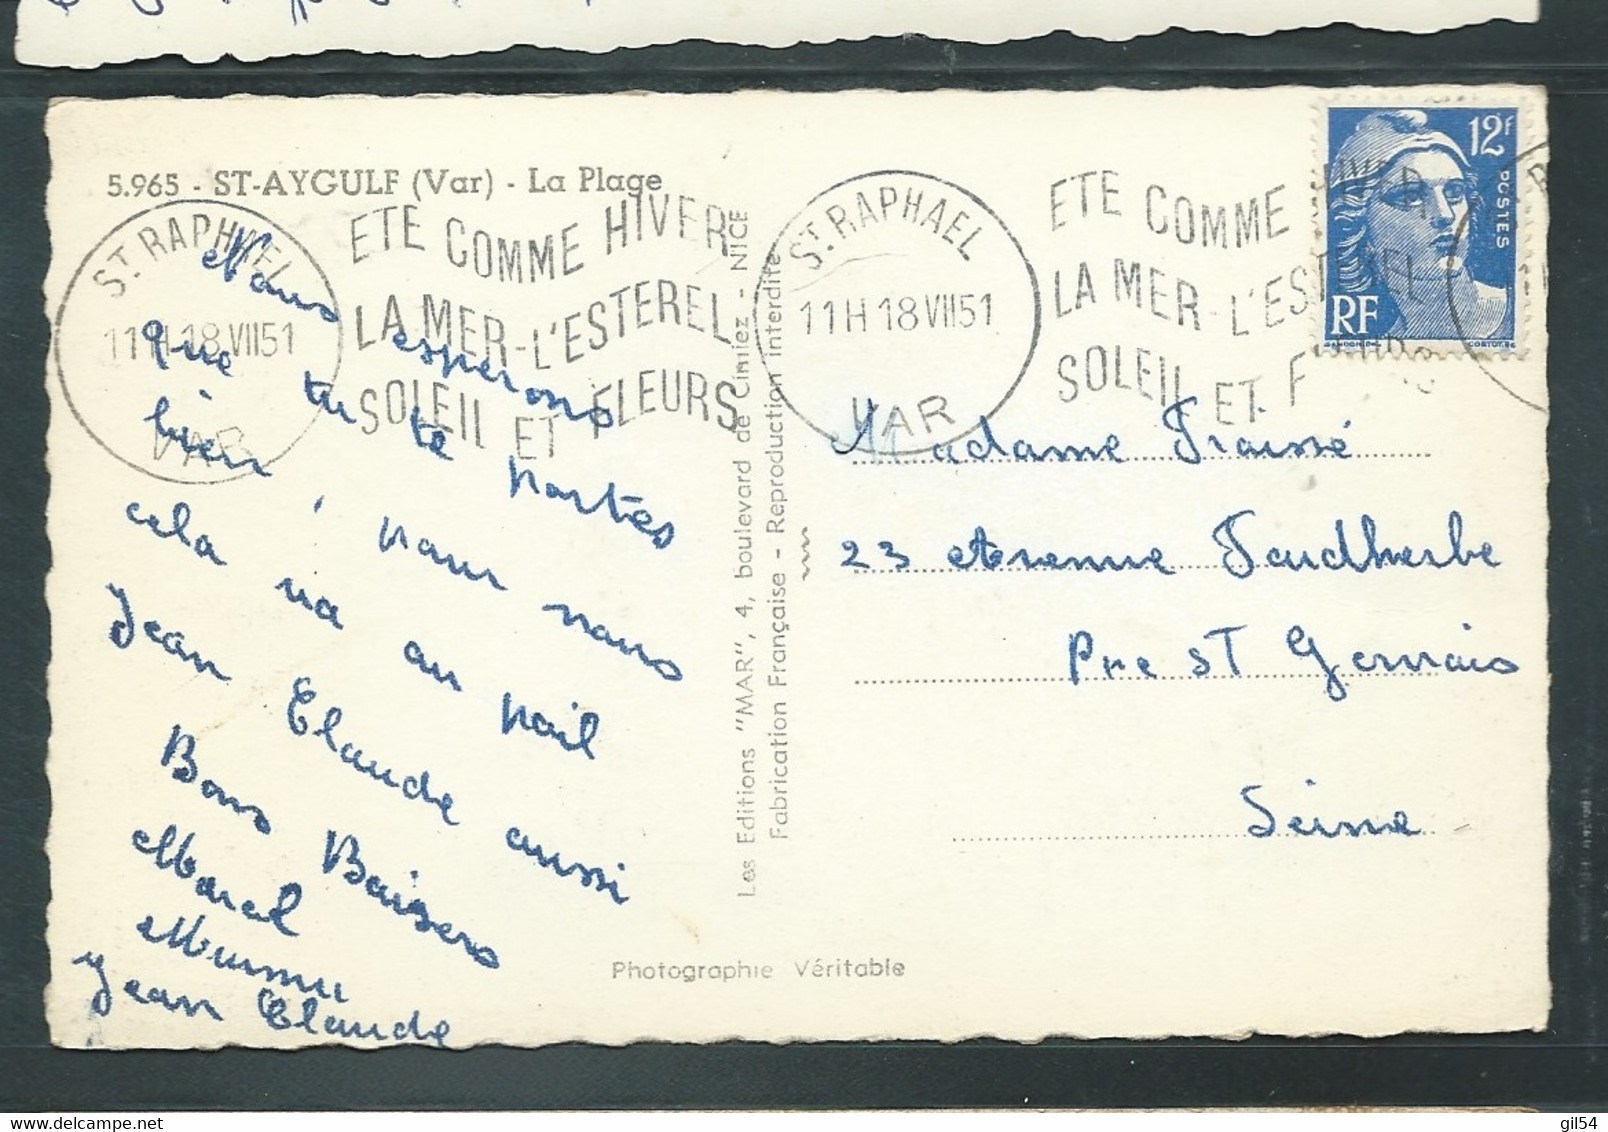 5.965 - ST-AYGULF (Var) - La Plage
ST. RAPHAEL
11H 18 VII 51
VAR
ETE COMME HIVER
LA MER - L'ESTEREL
SOLEIL ET FLEURS
ST. RAPHAEL
11H 18 VII 51
VAR
ETE COMME HIVER
LA MER - L'ESTEREL
SOLEIL ET F
12F
POSTES
RF
Nous esperons
que tu te portes
bien, pour nous
cela va au poil
Jean Claude aussi
Bons Baisers
Marcel
Mumu
Jean Claude
Les Editions "MAR", 4, boulevard de Cimiez - NICE
Fabrication Française - Reproduction interdite
Madame Fraissé
23 Avenue Faidherbe
Pré St Gervais
Seine
Photographie Véritable
delcampe.net
gil54